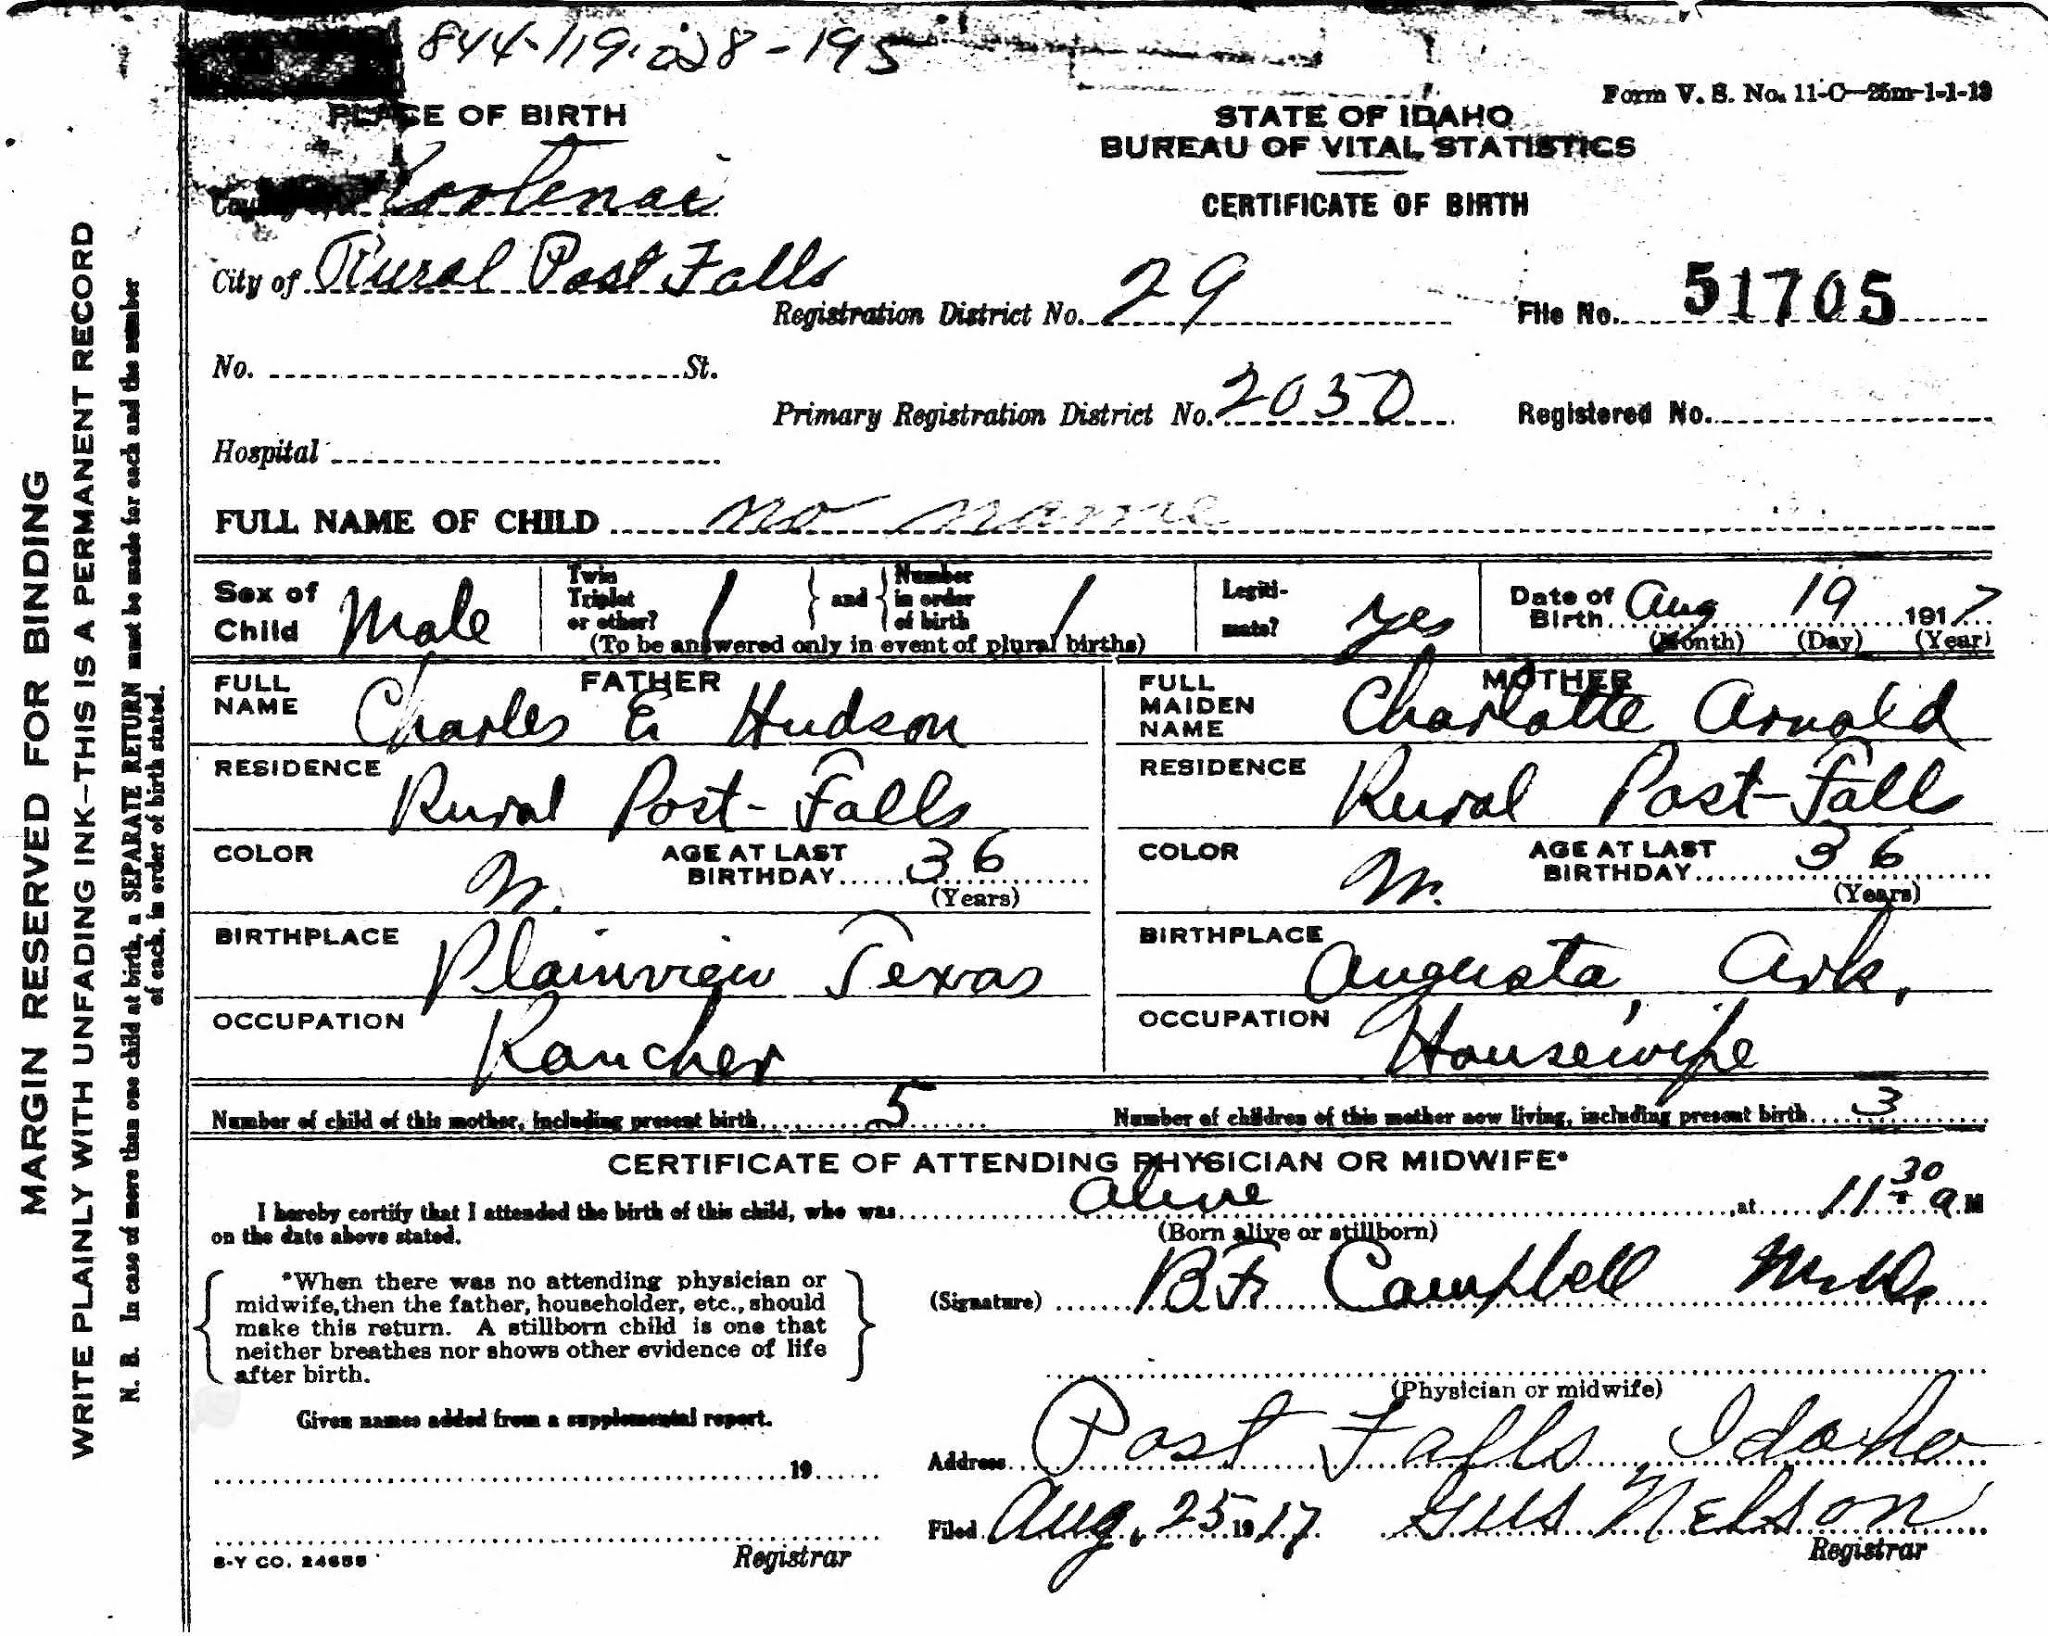 844-119-028-195
Form V. S. No. 11-C—25m-1-1-13
PLACE OF BIRTH
STATE OF IDAHO
BUREAU OF VITAL STATISTICS
CERTIFICATE OF BIRTH
County of Kootenai
City of Rural Post Falls
Registration District No. 29
File No. 51705
No. St.
Primary Registration District No. 2030
Registered No.
Hospital
FULL NAME OF CHILD no name
Sex of Child Male
Twin Triplet or other? 1 and Number in order of birth 1
(To be answered only in event of plural births)
Legiti-mate? yes
Date of Birth Aug 19 1917
(Month) (Day) (Year)
FATHER
FULL NAME Charles E Hudson
RESIDENCE Rural Post-Falls
COLOR W. AGE AT LAST BIRTHDAY 36
(Years)
BIRTHPLACE Plainview Texas
OCCUPATION Rancher
MOTHER
FULL MAIDEN NAME Charlotte Arnold
RESIDENCE Rural Post-Falls
COLOR W. AGE AT LAST BIRTHDAY 36
(Years)
BIRTHPLACE Augusta, Ark,
OCCUPATION Housewife
Number of child of this mother, including present birth 5
Number of children of this mother now living, including present birth 3
CERTIFICATE OF ATTENDING PHYSICIAN OR MIDWIFE*
I hereby certify that I attended the birth of this child, who was alive, at 11 30 a M
(Born alive or stillborn)
on the date above stated.
*When there was no attending physician or
midwife, then the father, householder, etc., should
make this return. A stillborn child is one that
neither breathes nor shows other evidence of life
after birth.
(Signature) B.F. Campbell M.D.
(Physician or midwife)
Given names added from a supplemental report.
19
Address Post Falls, Idaho
Filed Aug, 25 1917 Gus Nelson
Registrar
Registrar
S-Y CO. 24655
MARGIN RESERVED FOR BINDING
WRITE PLAINLY WITH UNFADING INK—THIS IS A PERMANENT RECORD
N. B. In case of more than one child at birth, a SEPARATE RETURN must be made for each and the number
of each, in order of birth stated.